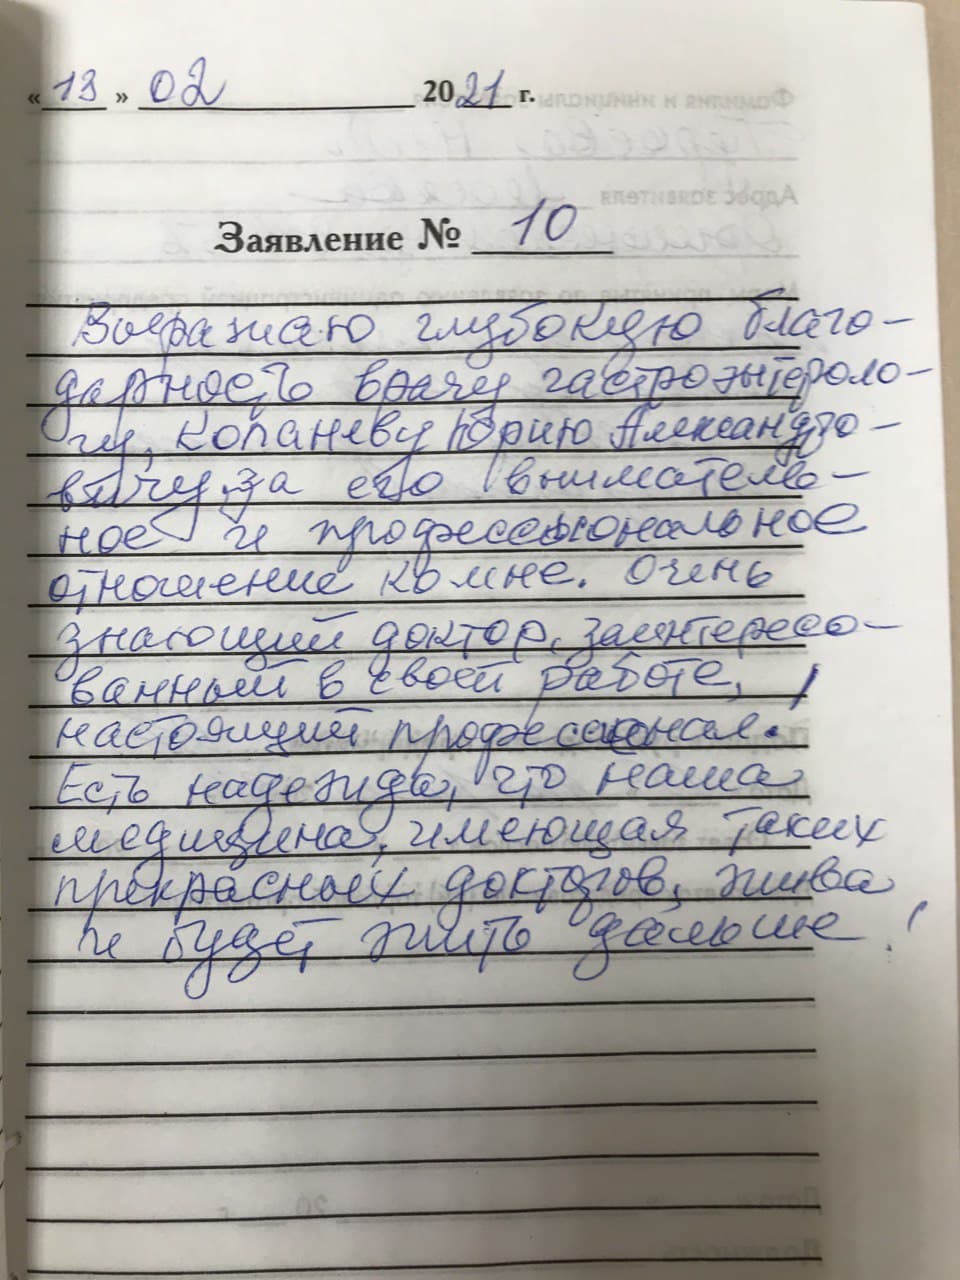 «13» 02 2021 г.
Заявление № 10
Выражаю глубокую благо-
дарность врачу гастроэнтероло-
гу, Копаневу Юрию Александро-
вичу, за его вниматель-
ное и профессиональное
отношение ко мне. Очень
знающий доктор, заинтересо-
ванный в своей работе,
настоящий профессионал.
Есть надежда, что наша
медицина, имеющая таких
прекрасных докторов, жива
и будет жить дальше!